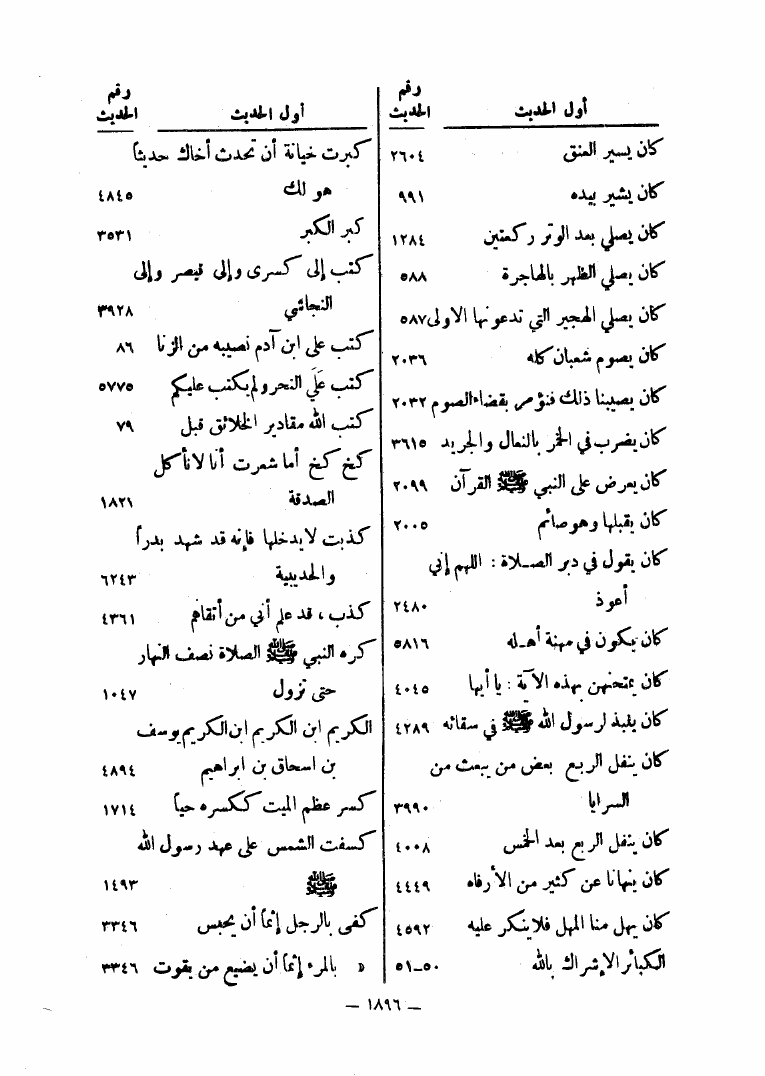 أول الحديث	رقم الحديث
كان يسير العنق	٢٦٠٤
كان يشير بيده	٩٩١
كان يصلي بعد الوتر ركعتين	١٢٨٤
كان يصلي الظهر بالهاجرة	٥٨٨
كان يصلي الهجير التي تدعونها الاولى	٥٨٧
كان يصوم شعبان كله	٢٠٣٦
كان يصيبنا ذلك فنؤمر بقضاء الصوم	٢٠٣٢
كان يضرب في الخمر بالنعال والجريد	٣٦١٥
كان يعرض على النبي ﷺ القرآن	٢٠٩٩
كان يقبلها وهو صائم	٢٠٠٥
كان يقول في دبر الصلاة : اللهم إني
أعوذ	٢٤٨٠
كان يكون في مهنة أهله	٥٨١٦
كان يمتحنهن بهذه الآية : يا أيها	٤٠٤٥
كان ينبذ لرسول الله ﷺ في سقائه	٤٢٨٩
كان ينفل الربع بعض من يبعث من
السرايا	٣٩٩٠
كان ينفل الربع بعد الخمس	٤٠٠٨
كان ينهانا عن كثير من الأرفاه	٤٤٤٩
كان يهل منا المهل فلا ينكر عليه	٤٥٩٢
الكبائر الإشراك بالله	٥٠-٥١
أول الحديث	رقم الحديث
كبرت خيانة أن تحدث أخاك حديثاً
هو لك	٤٨٤٥
كبر الكبر	٣٥٣١
كتب إلى كسرى وإلى قيصر وإلى
النجاشي	٣٩٢٨
كتب على ابن آدم نصيبه من الزنا	٨٦
كتب عَلَي النحر ولم يكتب عليكم	٥٧٧٥
كتب الله مقادير الخلائق قبل	٧٩
كخ كخ أما شعرت أنا لا نأكل
الصدقة	١٨٢١
كذبت لا يدخلها فإنه قد شهد بدراً
والحديبية	٦٢٤٣
كذب ، قد علم أني من أتقاهم	٤٣٦١
كره النبي ﷺ الصلاة نصف النهار
حتى تزول	١٠٤٧
الكريم ابن الكريم ابن الكريم يوسف
بن اسحاق بن ابراهيم	٤٨٩٤
كسر عظم الميت ككسره حياً	١٧١٤
كسفت الشمس على عهد رسول الله
ﷺ	١٤٩٣
كفى بالرجل إثماً أن يحبس	٣٣٤٦
» بالمرء إثماً أن يضيع من يقوت	٣٣٤٦
— ١٨٩٦ —